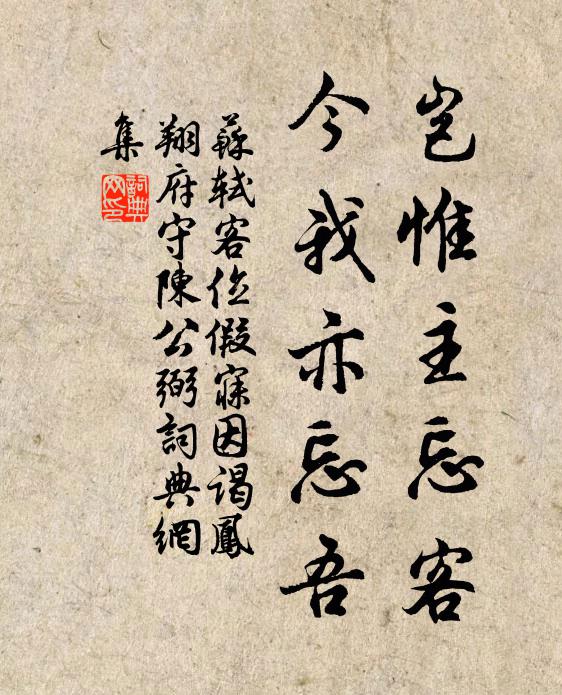 豈惟主忘客
今我亦忘吾
蘇軾客位假寐因謁鳳
翔府守陳公弼詞典網
集
詞典
网印